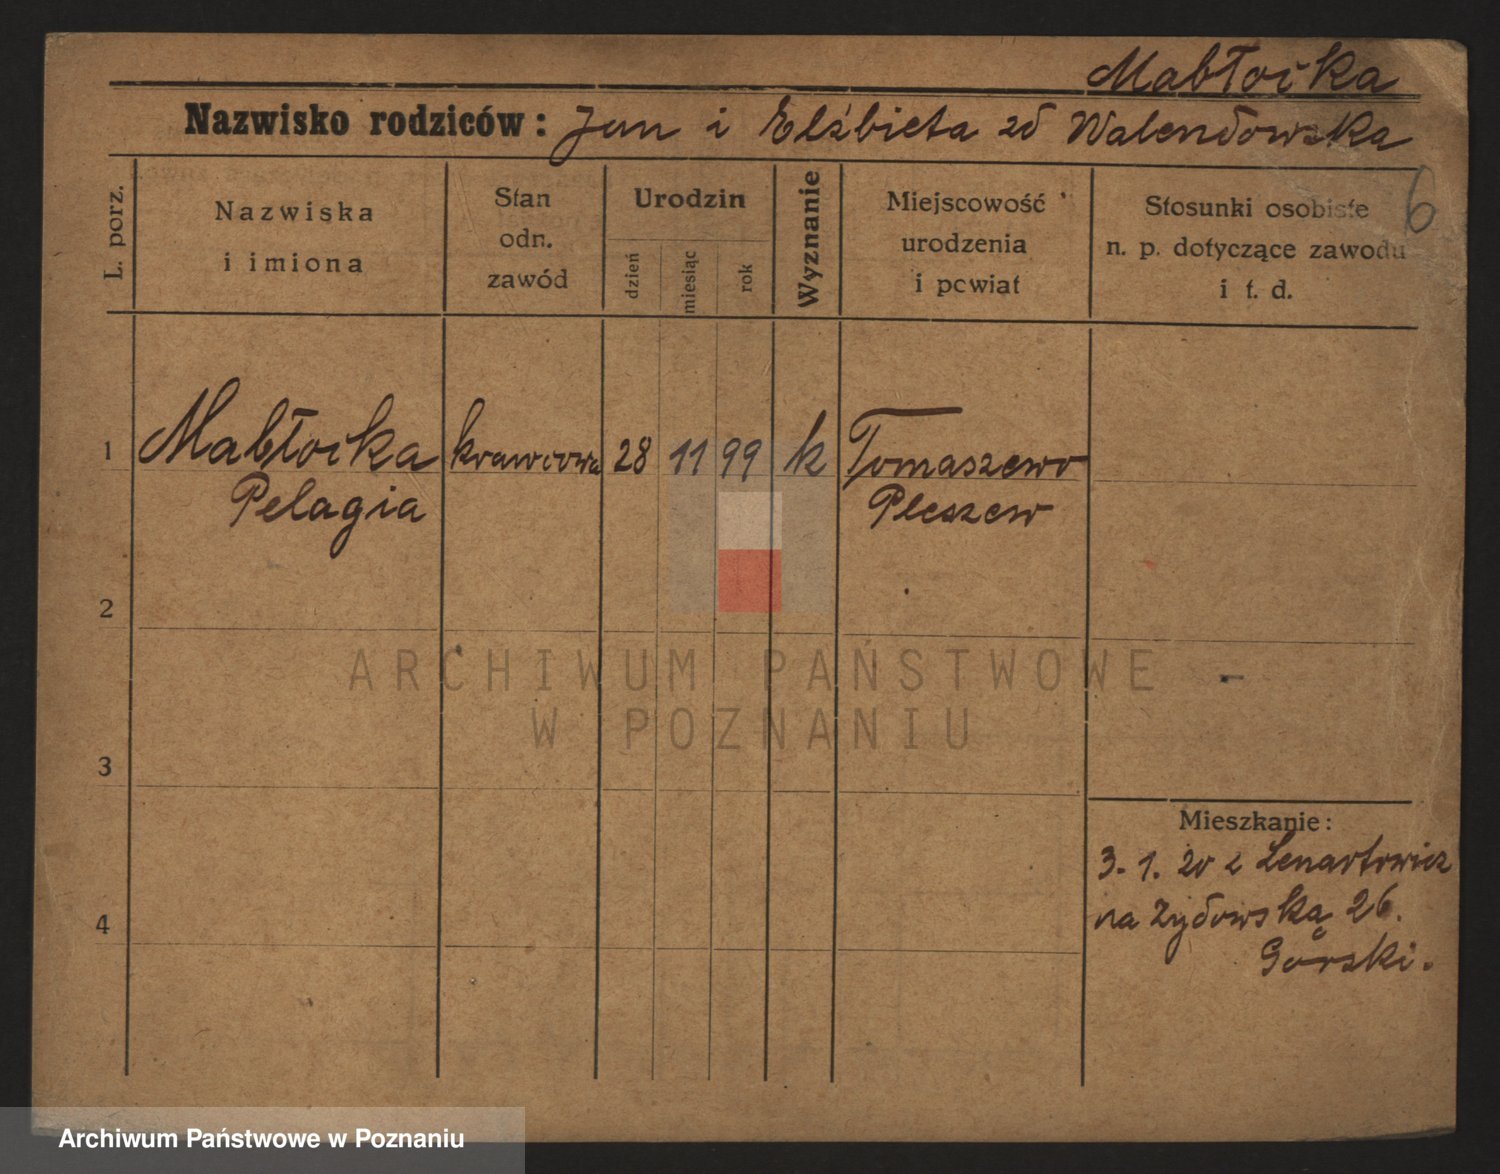 Mabłocka
Nazwisko rodziców: Jan i Elżbieta zd Walendowska
6
L. porz.
Nazwiska
i imiona
Stan
odn.
zawód
Urodzin
dzień
miesiąc
rok
Wyznanie
Miejscowość
urodzenia
i powiat
Stosunki osobiste
n. p. dotyczące zawodu
i t. d.
1 Mabłocka krawcowa 28 11 99 k Tomaszewo
Pelagia Pleszew
2
3
4
ARCHIWUM PAŃSTWOWE
W POZNANIU
Mieszkanie:
3. 1. 20 z Lenartowicz
na Żydowską 26.
Górski.
Archiwum Państwowe w Poznaniu